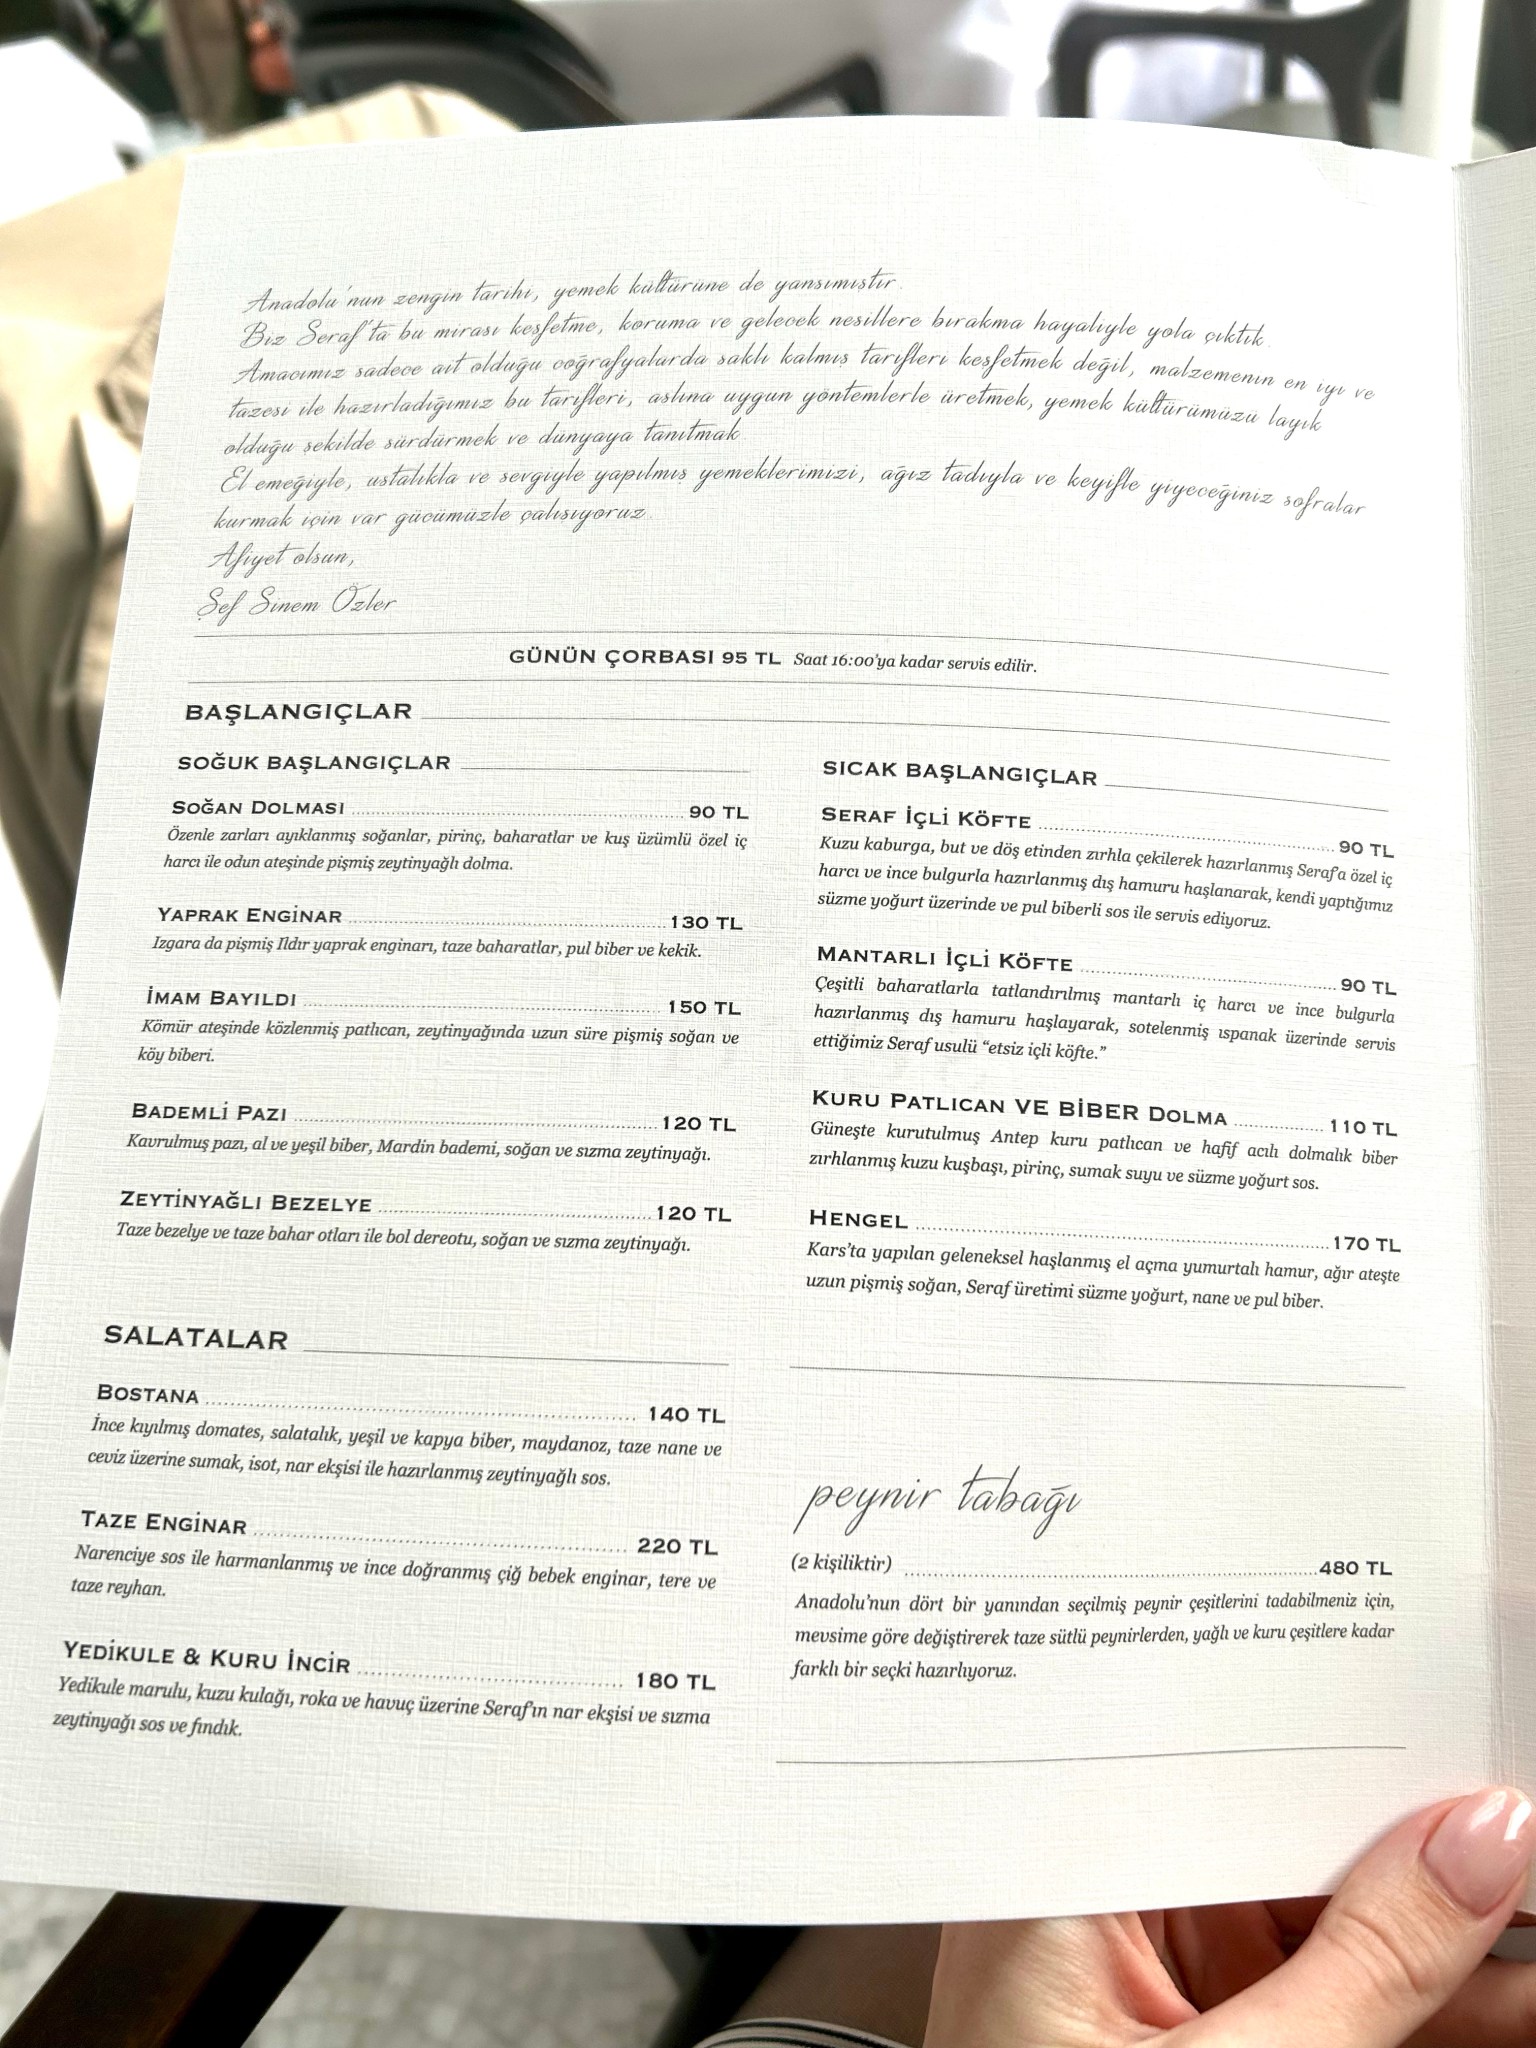 Anadolu'nun zengin tarihi, yemek kültürüne de yansımıştır.
Biz Seraf'ta bu mirası keşfetme, koruma ve gelecek nesillere bırakma hayaliyle yola çıktık.
Amacımız sadece ait olduğu coğrafyalarda saklı kalmış tarifleri keşfetmek değil, malzemenin en iyi ve
tazesi ile hazırladığımız bu tarifleri, aslına uygun yöntemlerle üretmek, yemek kültürümüzü layık
olduğu şekilde sürdürmek ve dünyaya tanıtmak.
El emeğiyle, ustalıkla ve sevgiyle yapılmış yemeklerimizi, ağız tadıyla ve keyifle yiyeceğiniz sofralar
kurmak için var gücümüzle çalışıyoruz.
Afiyet olsun,
Şef Sinem Özler
GÜNÜN ÇORBASI 95 TL Saat 16:00'ya kadar servis edilir.
BAŞLANGIÇLAR
SOĞUK BAŞLANGIÇLAR
SOĞAN DOLMASI 90 TL
Özenle zarları ayıklanmış soğanlar, pirinç, baharatlar ve kuş üzümlü özel iç
harcı ile odun ateşinde pişmiş zeytinyağlı dolma.
YAPRAK ENGİNAR 130 TL
Izgara da pişmiş Ildır yaprak enginarı, taze baharatlar, pul biber ve kekik.
İMAM BAYILDI 150 TL
Kömür ateşinde közlenmiş patlıcan, zeytinyağında uzun süre pişmiş soğan ve
köy biberi.
BADEMLİ PAZI 120 TL
Kavrulmuş pazı, al ve yeşil biber, Mardin bademi, soğan ve sızma zeytinyağı.
ZEYTİNYAĞLI BEZELYE 120 TL
Taze bezelye ve taze bahar otları ile bol dereotu, soğan ve sızma zeytinyağı.
SALATALAR
BOSTANA 140 TL
İnce kıyılmış domates, salatalık, yeşil ve kapya biber, maydanoz, taze nane ve
ceviz üzerine sumak, isot, nar ekşisi ile hazırlanmış zeytinyağlı sos.
TAZE ENGINAR 220 TL
Narenciye sos ile harmanlanmış ve ince doğranmış çiğ bebek enginar, tere ve
taze reyhan.
YEDİKULE & KURU İNCİR 180 TL
Yedikule marulu, kuzu kulağı, roka ve havuç üzerine Seraf'ın nar ekşisi ve sızma
zeytinyağı sos ve fındık.
SICAK BAŞLANGIÇLAR
SERAF İÇLİ KÖFTE 90 TL
Kuzu kaburga, but ve döş etinden zırhla çekilerek hazırlanmış Seraf'a özel iç
harcı ve ince bulgurla hazırlanmış dış hamuru haşlanarak, kendi yaptığımız
süzme yoğurt üzerinde ve pul biberli sos ile servis ediyoruz.
MANTARLI İÇLİ KÖFTE 90 TL
Çeşitli baharatlarla tatlandırılmış mantarlı iç harcı ve ince bulgurla
hazırlanmış dış hamuru haşlayarak, sotelenmiş ıspanak üzerinde servis
ettiğimiz Seraf usulü “etsiz içli köfte.”
KURU PATLICAN VE BİBER DOLMA 110 TL
Güneşte kurutulmuş Antep kuru patlıcan ve hafif acılı dolmalık biber
zırhlanmış kuzu kuşbaşı, pirinç, sumak suyu ve süzme yoğurt sos.
HENGEL 170 TL
Kars'ta yapılan geleneksel haşlanmış el açma yumurtalı hamur, ağır ateşte
uzun pişmiş soğan, Seraf üretimi süzme yoğurt, nane ve pul biber.
peynir tabağı
(2 kişiliktir) 480 TL
Anadolu'nun dört bir yanından seçilmiş peynir çeşitlerini tadabilmeniz için,
mevsime göre değiştirerek taze sütlü peynirlerden, yağlı ve kuru çeşitlere kadar
farklı bir seçki hazırlıyoruz.